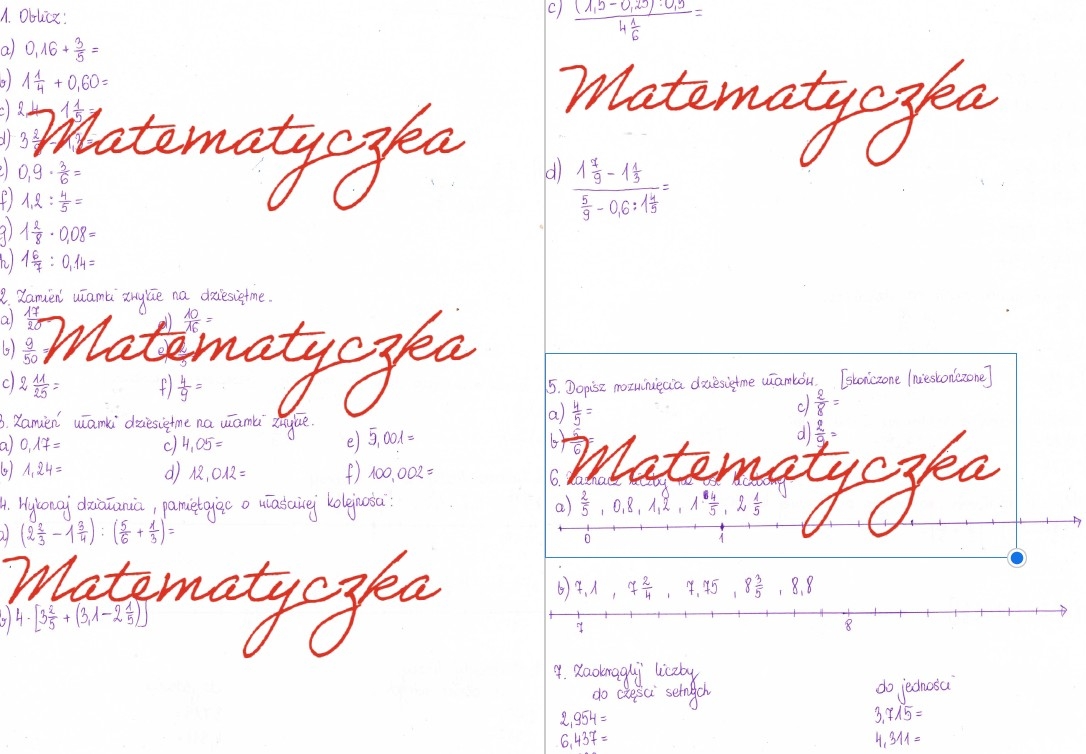 1. Oblicz:
a) 0,16 + 3/5 =
b) 1 1/4 + 0,60 =
c) 2,4 1 1/5 =
d) 3
e) 0,9 · 3/6 =
f) 1,2 : 4/5 =
g) 1 2/8 · 0,08 =
h) 1 6/7 : 0,14 =
Matematyczka
2. Zamień ułamki zwykłe na dziesiętne.
a) 17/20 d) 10/16 =
b) 9/50 = e)
c) 2 11/25 = f) 4/9 =
Matematyczka
3. Zamień ułamki dziesiętne na ułamki zwykłe.
a) 0,17 = c) 4,05 = e) 5,001 =
b) 1,24 = d) 12,012 = f) 100,002 =
4. Wykonaj działania, pamiętając o właściwej kolejności:
a) (2 2/3 - 1 3/4) : (5/6 + 1/3) =
Matematyczka
b) 4 · [3 2/5 + (3,1 - 2 1/5)]
c) (1,5 - 0,25) : 0,5 / 4 1/6 =
Matematyczka
d) 1 7/9 - 1 1/3 / 5/9 - 0,6 : 1 4/5 =
5. Dopisz rozwinięcia dziesiętne ułamków. [skończone/nieskończone]
a) 4/5 = c) 2/8 =
b) 5/6 = d) 2/9 =
Matematyczka
6. Zaznacz liczby na osi liczbowej.
a) 2/5, 0,8, 1,2, 1 4/5, 2 1/5
0 1
b) 7,1, 7 2/4, 7,75, 8 3/5, 8,8
7 8
7. Zaokrąglij liczby
do części setnych do jedności
2,954 = 3,715 =
6,437 = 4,311 =